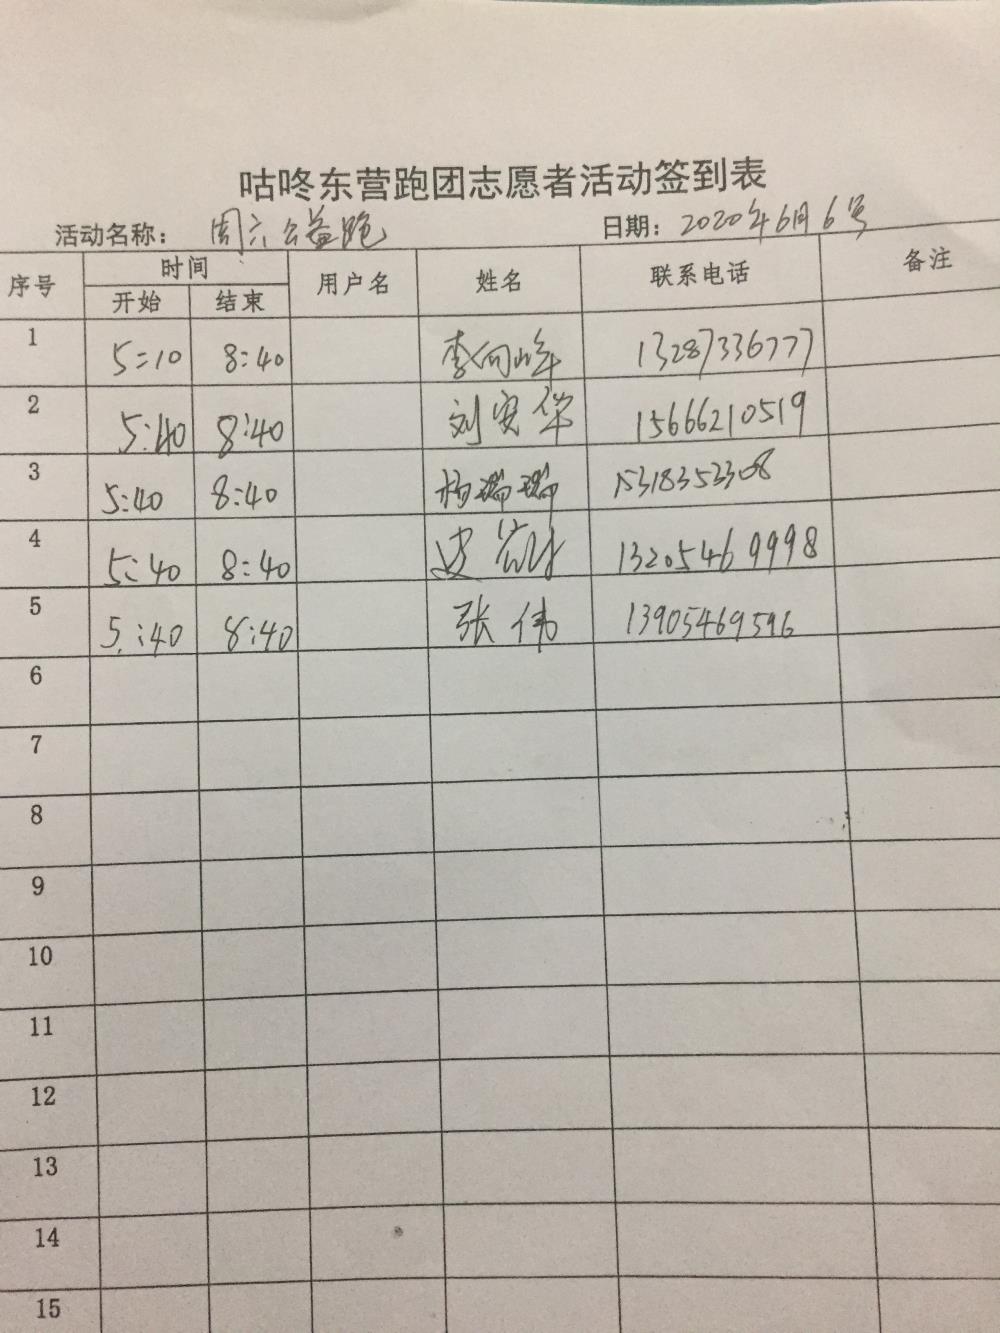 咕咚东营跑团志愿者活动签到表
活动名称: 周六公益跑 日期: 2020年6月6号
序号 时间 用户名 姓名 联系电话 备注
开始 结束
1 5:10 8:40 李向峰 13287336777
2 5:40 8:40 刘安华 15666210519
3 5:40 8:40 杨瑞瑞 15318352308
4 5:40 8:40 13205469998
5 5:40 8:40 张伟 13905469596
6
7
8
9
10
11
12
13
14
15